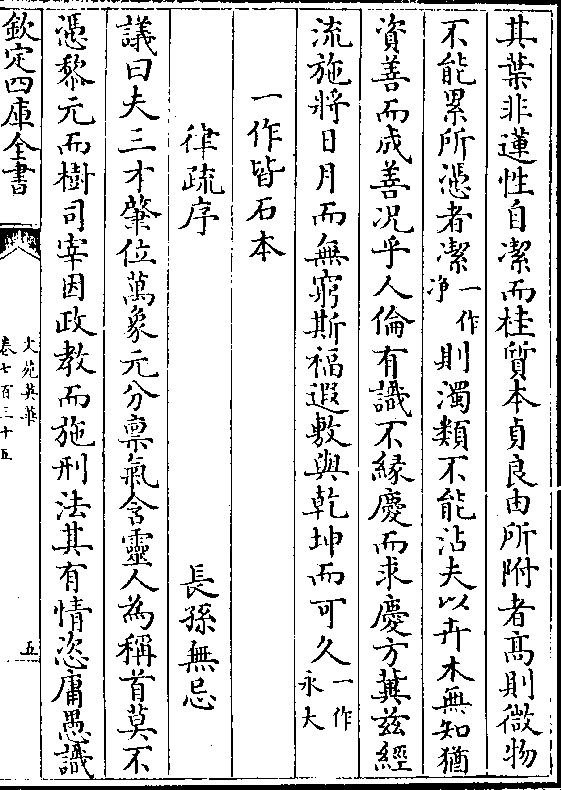 其葉非蓮性自潔而桂質本貞良由所附者高則微物
不能累所憑者潔一作净則濁類不能沾夫以卉木無知猶
資善而成善況乎人倫有識不緣慶而求慶方冀兹經
流施將日月而無窮斯福遐敷與乾坤而可久一作永大
一作皆石本
律疏序 長孫無忌
議曰夫三才肇位萬象元分禀氣含靈人為稱首莫不
憑黎元而樹司宰因政教而施刑法其有情恣庸愚識
欽定四庫全書
文苑英華
卷七百三十五
五